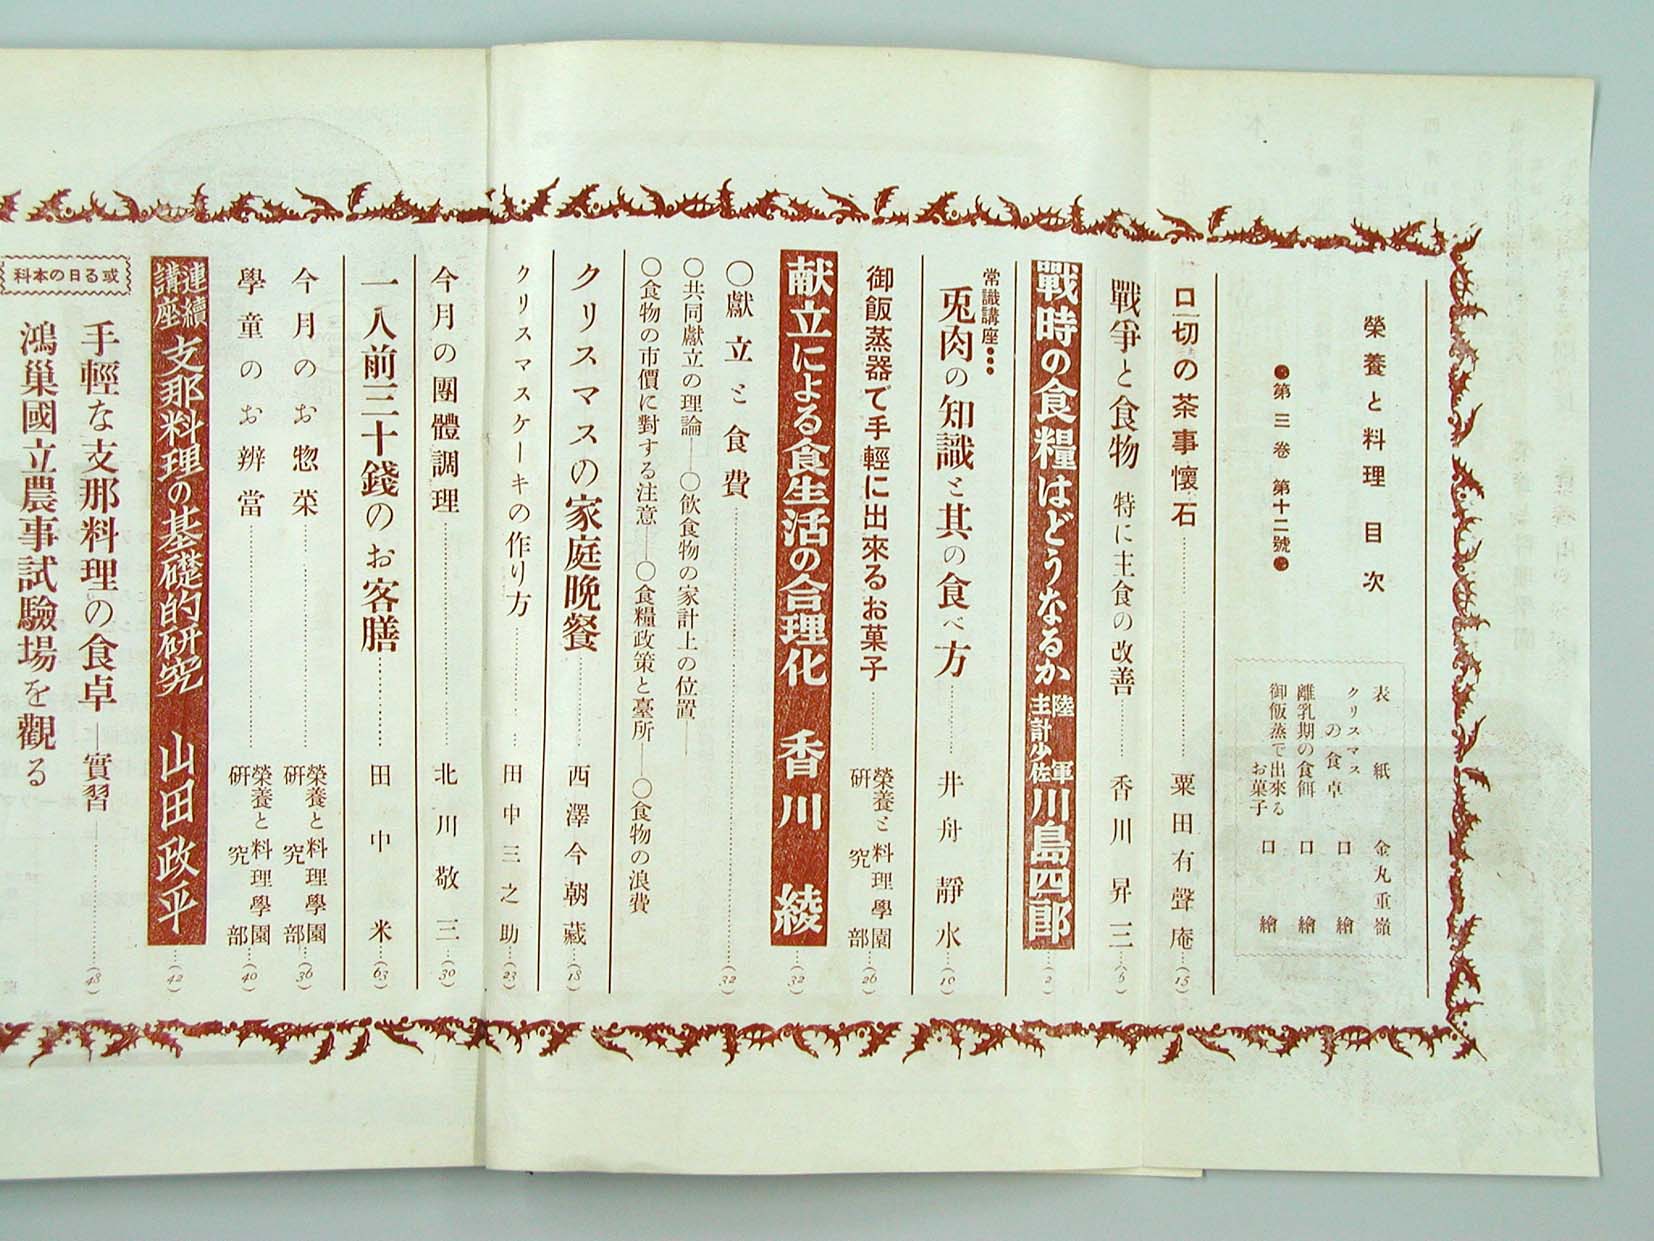 榮養と料理 目次
●第三卷 第十二號●
表紙 金丸重嶺
クリスマスの食卓 口繪
離乳期の食餌 口繪
御飯蒸で出來るお菓子 口繪
口切の茶事懷石 粟田有聲庵 (15)
戰爭と食物 特に主食の改善 香川昇三 (6)
戰時の食糧はどうなるか 陸軍主計少佐 川島四郎 (2)
常識講座●●●
兎肉の知識と其の食べ方 井舟靜水 (10)
御飯蒸器で手輕に出來るお菓子 榮養と料理學園研究部 (26)
献立による食生活の合理化 香川綾 (32)
〇獻立と食費 (32)
〇共同獻立の理論―〇飲食物の家計上の位置―
〇食物の市價に對する注意―〇食糧政策と臺所―〇食物の浪費
クリスマスの家庭晩餐 西澤今朝藏 (18)
クリスマスケーキの作り方 田中三之助 (23)
今月の團體調理 北川敬三 (30)
一人前三十錢のお客膳 田中米 (63)
今月のお惣菜 榮養と料理學園研究部 (36)
學童のお辨當 榮養と料理學園研究部 (40)
連續講座 支那料理の基礎的研究 山田政平 (42)
手輕な支那料理の食卓―實習 (48)
或る日の本科
鴻巢國立農事試驗場を觀る